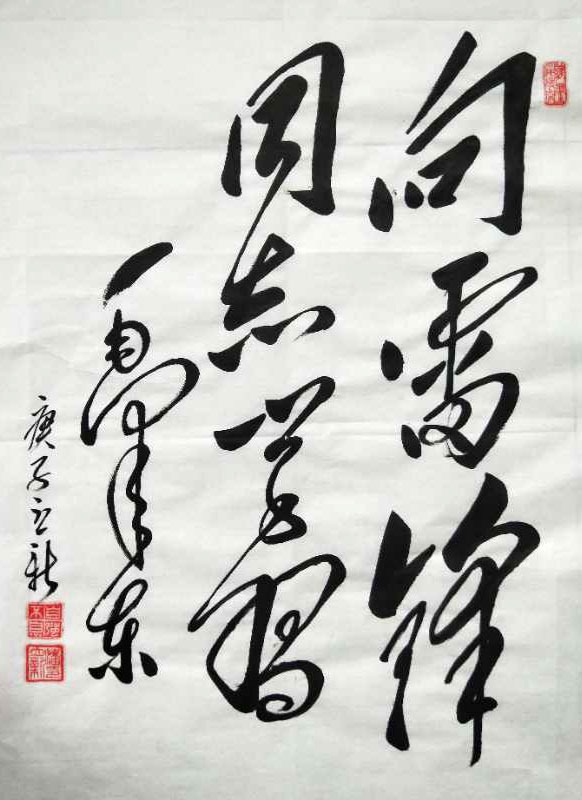 向雷锋
同志学习
毛泽东
庚子立秋